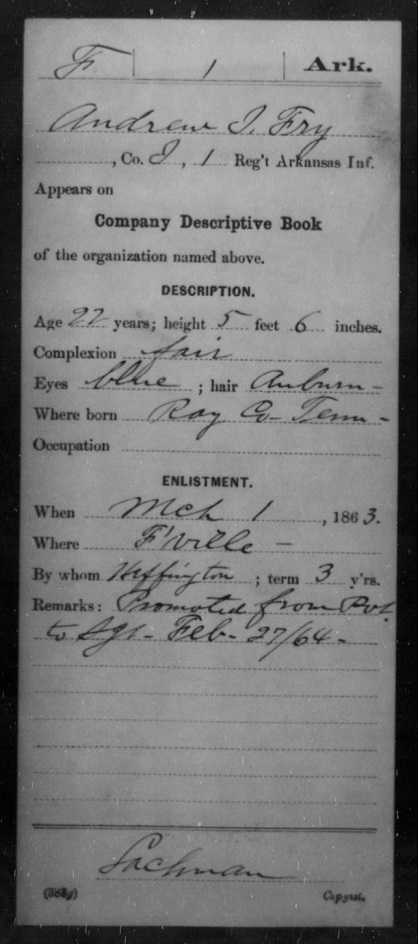 F | 1 | Ark.
Andrew J. Fry
, Co. I, 1 Reg't Arkansas Inf.
Appears on
Company Descriptive Book
of the organization named above.
DESCRIPTION.
Age 22 years; height 5 feet 6 inches.
Complexion fair
Eyes blue ; hair Auburn -
Where born Ray Co- Tenn -
Occupation
ENLISTMENT.
When Mch 1, 1863.
Where F'ville -
By whom Heffington ; term 3 y'rs.
Remarks: Promoted from Pvt
to Sgt - Feb - 27/64 -
Lachman
Copyist.